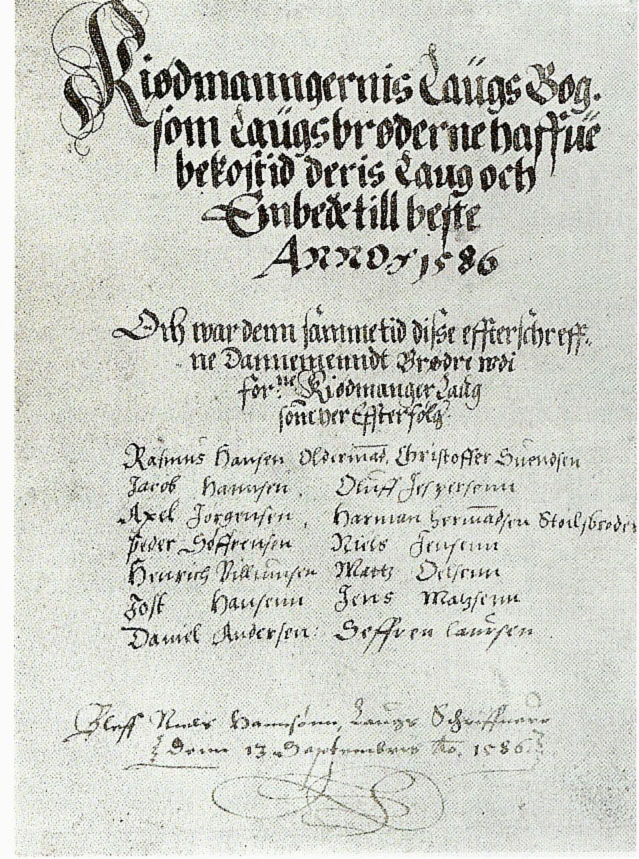 Kiødmanngernis Laugs Bog.
som Laugsbrøderne haffue
bekostid deris Laug och
Embede till beste
ANNO 1586
Och war denn samme tid disse effterschreff-
ne Dannemenndt Brødre wdi
for:ne Kiødmanger Laug
som her Effterfølg
Rasmus Hansen Oldermad, Christoffer Suendsen
Jacob Hannsen, Oluff Jespersenn
Axel Jørgensen, Harman Hermadsen Stoilsbroder
Peder Søffrensen Niels Jensenn
Henrich Villumsen Matz Oelsenn
Jost Hansenn Jens Matzsenn
Daniel Andersen: Seffren Laursen
Niels Hannsønn, Laugs Schriffuere
Denn 13 Septembris Ao. 1586